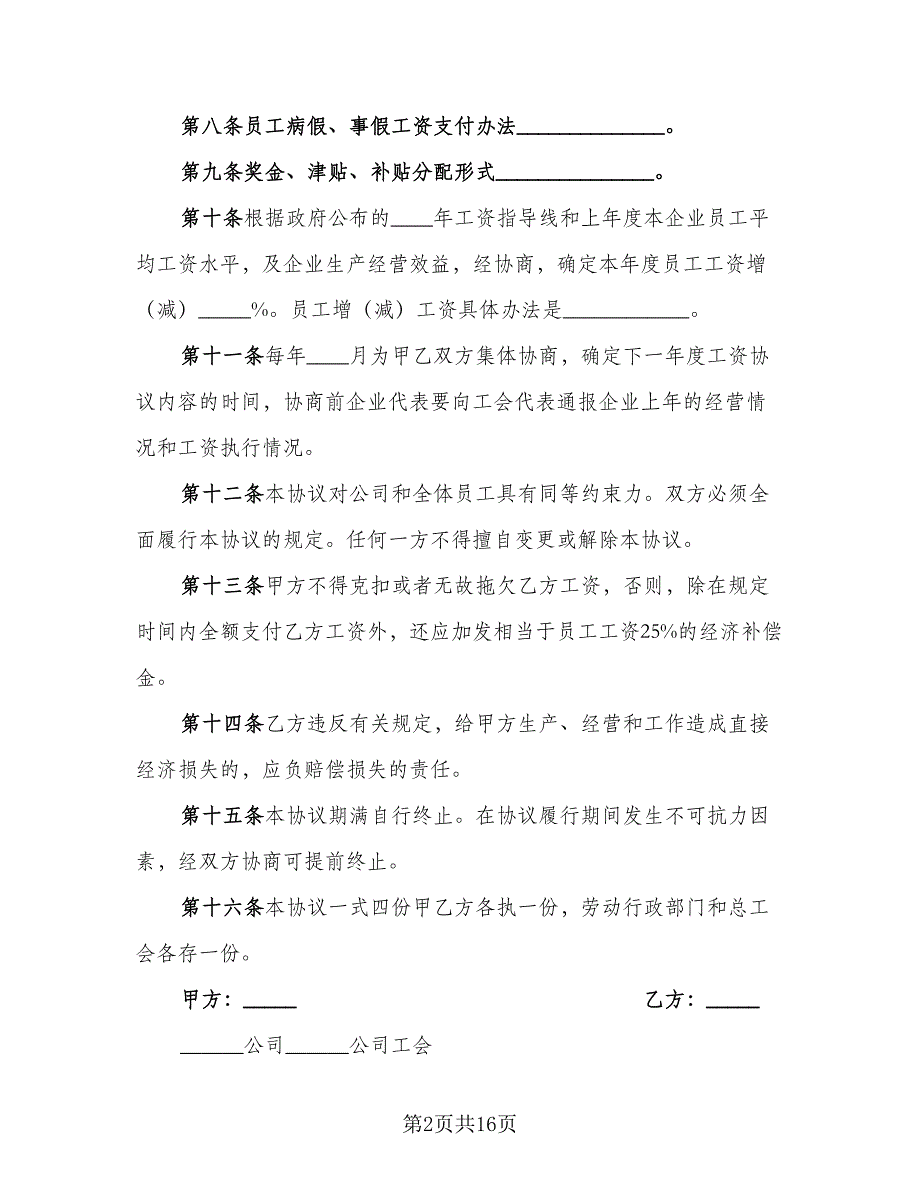 第八条员工病假、事假工资支付办法______________。
第九条奖金、津贴、补贴分配形式_______________。
第十条根据政府公布的____年工资指导线和上年度本企业员工平
均工资水平，及企业生产经营效益，经协商，确定本年度员工工资增
（减）_____%。员工增（减）工资具体办法是____________。
第十一条每年____月为甲乙双方集体协商，确定下一年度工资协
议内容的时间，协商前企业代表要向工会代表通报企业上年的经营情
况和工资执行情况。
第十二条本协议对公司和全体员工具有同等约束力。双方必须全
面履行本协议的规定。任何一方不得擅自变更或解除本协议。
第十三条甲方不得克扣或者无故拖欠乙方工资，否则，除在规定
时间内全额支付乙方工资外，还应加发相当于员工工资25%的经济补偿
金。
第十四条乙方违反有关规定，给甲方生产、经营和工作造成直接
经济损失的，应负赔偿损失的责任。
第十五条本协议期满自行终止。在协议履行期间发生不可抗力因
素，经双方协商可提前终止。
第十六条本协议一式四份甲乙方各执一份，劳动行政部门和总工
会各存一份。
甲方：_____ 乙方：_____
______公司______公司工会
第2页共16页